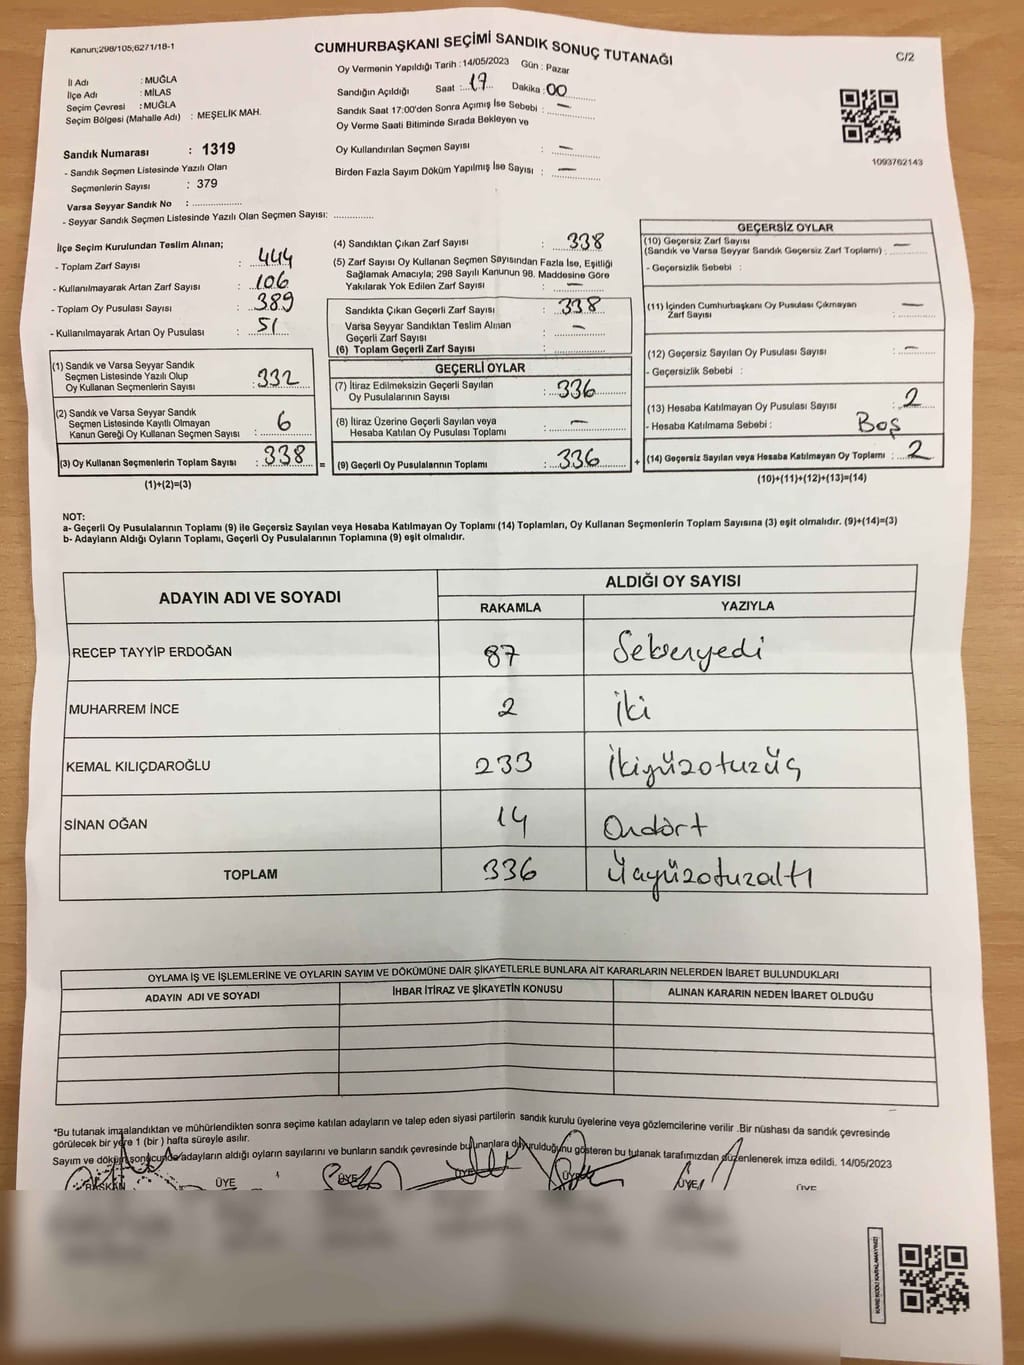 Kanun;298/105;6271/18-1
CUMHURBAŞKANI SEÇİMİ SANDIK SONUÇ TUTANAĞI
C/2
İl Adı : MUĞLA
İlçe Adı : MİLAS
Seçim Çevresi : MUĞLA
Seçim Bölgesi (Mahalle Adı) : MEŞELİK MAH.
Oy Vermenin Yapıldığı Tarih : 14/05/2023 Gün : Pazar
Sandığın Açıldığı Saat : 17 Dakika : 00
Sandık Saat 17:00'den Sonra Açımış İse Sebebi : —
Oy Verme Saati Bitiminde Sırada Bekleyen ve
Oy Kullandırılan Seçmen Sayısı : —
Birden Fazla Sayım Döküm Yapılmış İse Sayısı : —
1093762143
Sandık Numarası : 1319
- Sandık Seçmen Listesinde Yazılı Olan
Seçmenlerin Sayısı : 379
Varsa Seyyar Sandık No : ..................
- Seyyar Sandık Seçmen Listesinde Yazılı Olan Seçmen Sayısı: ..............
İlçe Seçim Kurulundan Teslim Alınan;
- Toplam Zarf Sayısı : 444
- Kullanılmayarak Artan Zarf Sayısı : 106
- Toplam Oy Pusulası Sayısı : 389
- Kullanılmayarak Artan Oy Pusulası : 51
(1) Sandık ve Varsa Seyyar Sandık
Seçmen Listesinde Yazılı Olup
Oy Kullanan Seçmenlerin Sayısı : 332
(2) Sandık ve Varsa Seyyar Sandık
Seçmen Listesinde Kayıtlı Olmayan
Kanun Gereği Oy Kullanan Seçmen Sayısı : 6
(3) Oy Kullanan Seçmenlerin Toplam Sayısı : 338
(1)+(2)=(3)
(4) Sandıktan Çıkan Zarf Sayısı : 338
(5) Zarf Sayısı Oy Kullanan Seçmen Sayısından Fazla İse, Eşitliği
Sağlamak Amacıyla; 298 Sayılı Kanunun 98. Maddesine Göre
Yakılarak Yok Edilen Zarf Sayısı : —
Sandıkta Çıkan Geçerli Zarf Sayısı : 338
Varsa Seyyar Sandıktan Teslim Alınan
Geçerli Zarf Sayısı : —
(6) Toplam Geçerli Zarf Sayısı : ..............
GEÇERLİ OYLAR
(7) İtiraz Edilmeksizin Geçerli Sayılan
Oy Pusulalarının Sayısı : 336
(8) İtiraz Üzerine Geçerli Sayılan veya
Hesaba Katılan Oy Pusulası Toplamı : —
= (9) Geçerli Oy Pusulalarının Toplamı : 336 +
GEÇERSİZ OYLAR
(10) Geçersiz Zarf Sayısı
(Sandık ve Varsa Seyyar Sandık Geçersiz Zarf Toplamı) : —
- Geçersizlik Sebebi :
(11) İçinden Cumhurbaşkanı Oy Pusulası Çıkmayan
Zarf Sayısı : —
(12) Geçersiz Sayılan Oy Pusulası Sayısı : —
- Geçersizlik Sebebi :
(13) Hesaba Katılmayan Oy Pusulası Sayısı : 2
- Hesaba Katılmama Sebebi : Boş
(14) Geçersiz Sayılan veya Hesaba Katılmayan Oy Toplamı : 2
(10)+(11)+(12)+(13)=(14)
NOT:
a- Geçerli Oy Pusulalarının Toplamı (9) ile Geçersiz Sayılan veya Hesaba Katılmayan Oy Toplamı (14) Toplamları, Oy Kullanan Seçmenlerin Toplam Sayısına (3) eşit olmalıdır. (9)+(14)=(3)
b- Adayların Aldığı Oyların Toplamı, Geçerli Oy Pusulalarının Toplamına (9) eşit olmalıdır.
ADAYIN ADI VE SOYADI ALDIĞI OY SAYISI
RAKAMLA YAZIYLA
RECEP TAYYİP ERDOĞAN 87 Seksenyedi
MUHARREM İNCE 2 İki
KEMAL KILIÇDAROĞLU 233 İkiyüzotuzüç
SİNAN OĞAN 14 Ondört
TOPLAM 336 Üçyüzotuzaltı
OYLAMA İŞ VE İŞLEMLERİNE VE OYLARIN SAYIM VE DÖKÜMÜNE DAİR ŞİKAYETLERLE BUNLARA AİT KARARLARIN NELERDEN İBARET BULUNDUKLARI
ADAYIN ADI VE SOYADI İHBAR İTİRAZ VE ŞİKAYETİN KONUSU ALINAN KARARIN NEDEN İBARET OLDUĞU
*Bu tutanak imzalandıktan ve mühürlendikten sonra seçime katılan adayların ve talep eden siyasi partilerin sandık kurulu üyelerine veya gözlemcilerine verilir .Bir nüshası da sandık çevresinde
görülecek bir yere 1 (bir ) hafta süreyle asılır.
Sayım ve döküm sonucunda adayların aldığı oyların sayılarını ve bunların sandık çevresinde bulunanlara duyurulduğunu gösteren bu tutanak tarafımızdan düzenlenerek imza edildi. 14/05/2023
BAŞKAN ÜYE ÜYE ÜYE ÜYE ÜYE ÜYE
KARE KODU KARALAMAYINIZ!